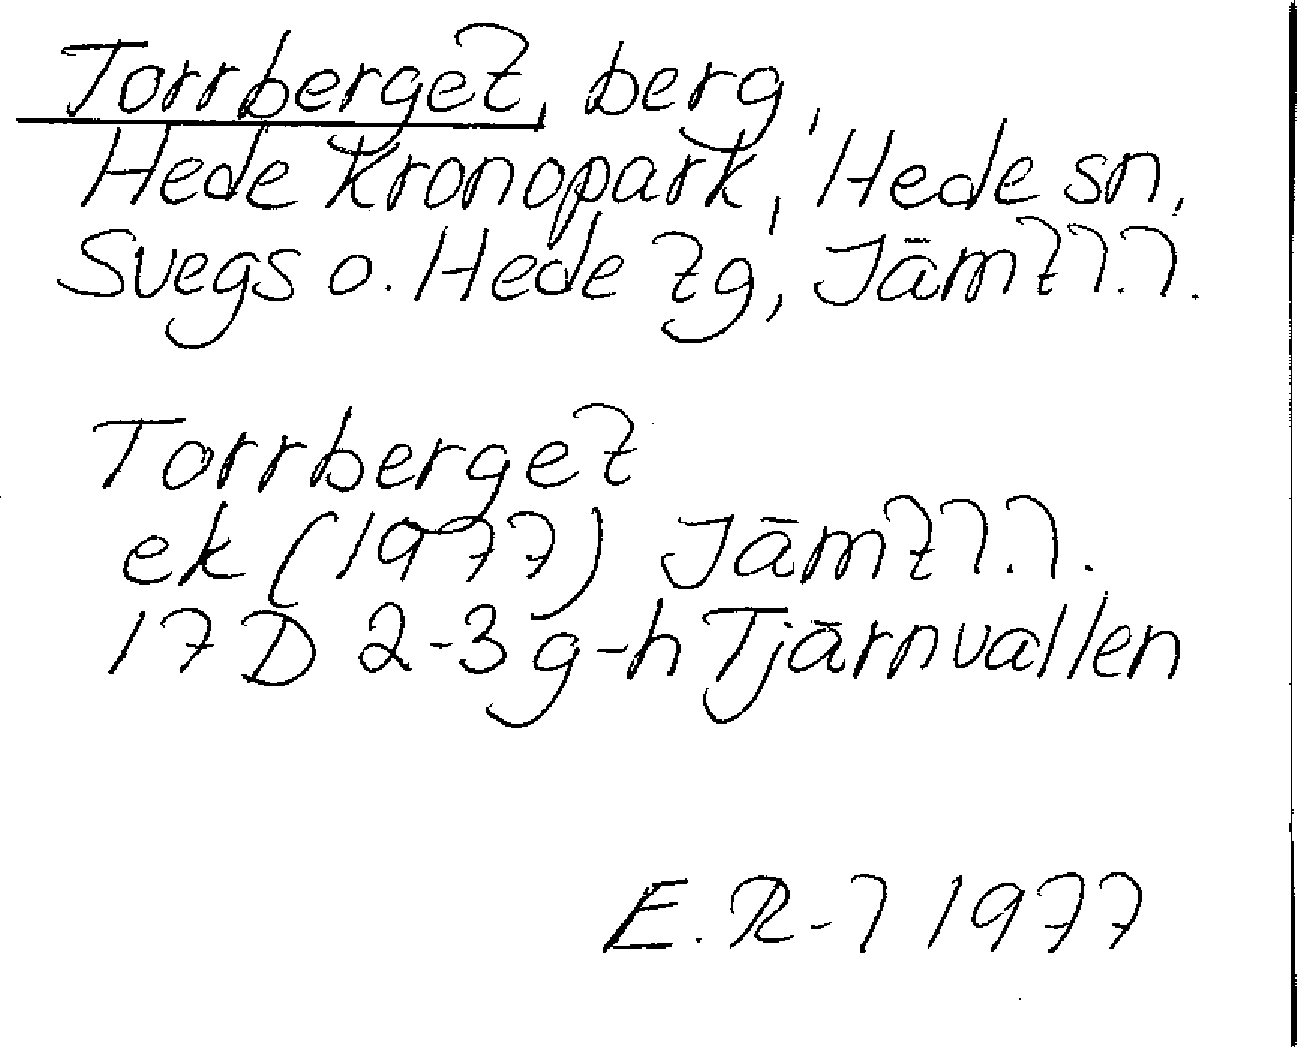 Torrberget, berg,
Hede kronopark, Hede sn,
Svegs o. Hede tg, Jämtl.l.
Torrberget
ek (1977) Jämtl.l.
17 D 2-3 g-h Tjärnvallen
E. R-l 1977